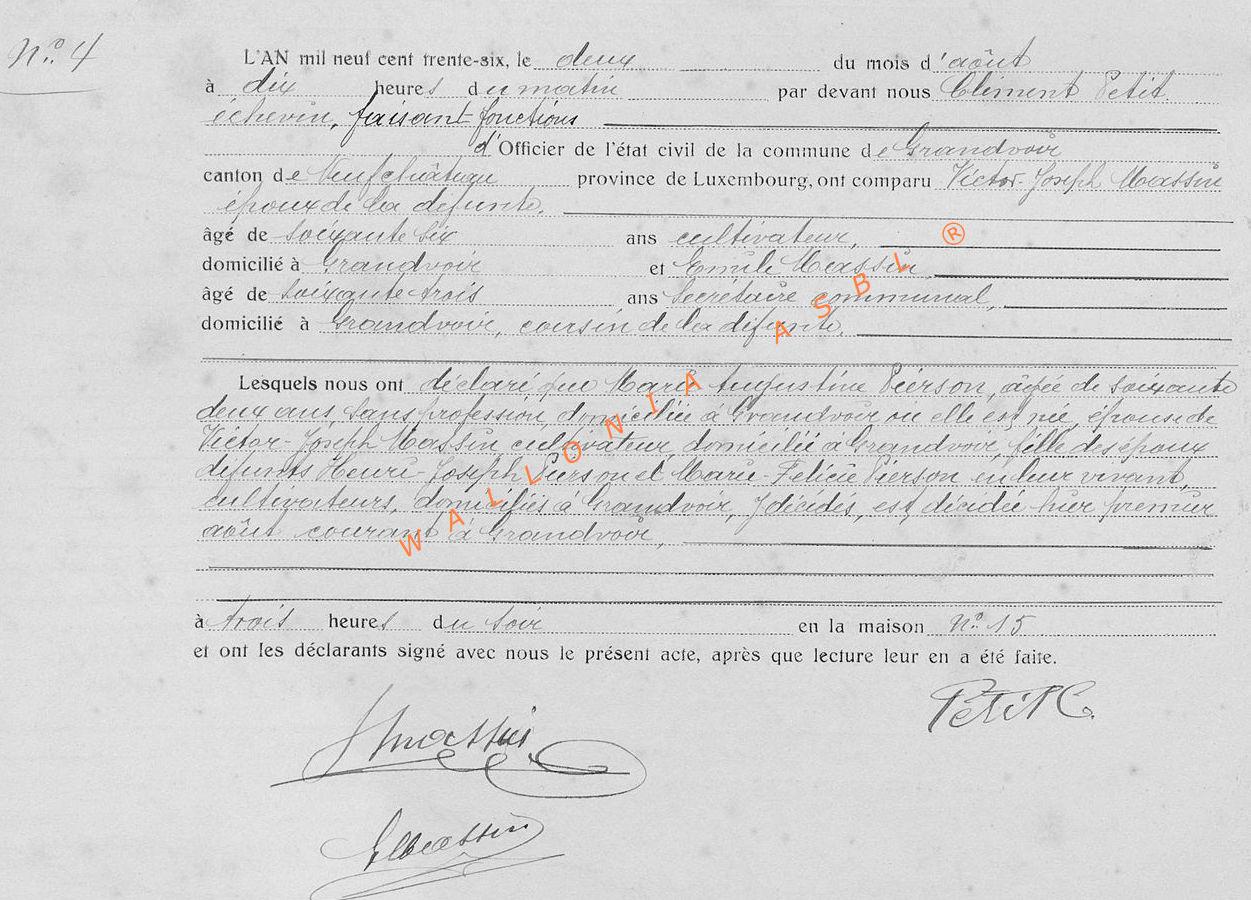 N° 4
L'AN mil neuf cent trente-six, le deux du mois d'août
à dix heures du matin par devant nous Clément Petit
échevin, faisant fonctions
d'Officier de l'état civil de la commune de Grandvoir
canton de Neufchâteau province de Luxembourg, ont comparu Victor-Joseph Massin
époux de la defunte,
âgé de soixante six ans cultivateur,
domicilié à Grandvoir et Emile Massin
âgé de soixante trois ans secrétaire communal,
domicilié à Grandvoir, cousin de la défunte,
Lesquels nous ont déclaré que Marie Augustine Pierson, âgée de soixante
deux ans, sans profession, domiciliée à Grandvoir où elle est née, épouse de
Victor-Joseph Massin cultivateur, domicilié à Grandvoir, fille des époux
défunts Henri-Joseph Pierson et Marie-Félicie Pierson en leur vivant,
cultivateurs, domiciliés à Grandvoir, y décédés, est décédée hier premier
août courant à Grandvoir,
à trois heures du soir en la maison N° 15
et ont les déclarants signé avec nous le présent acte, après que lecture leur en a été faite.
Petit C.
Massin
E Massin
WALLONIA ASBL ®